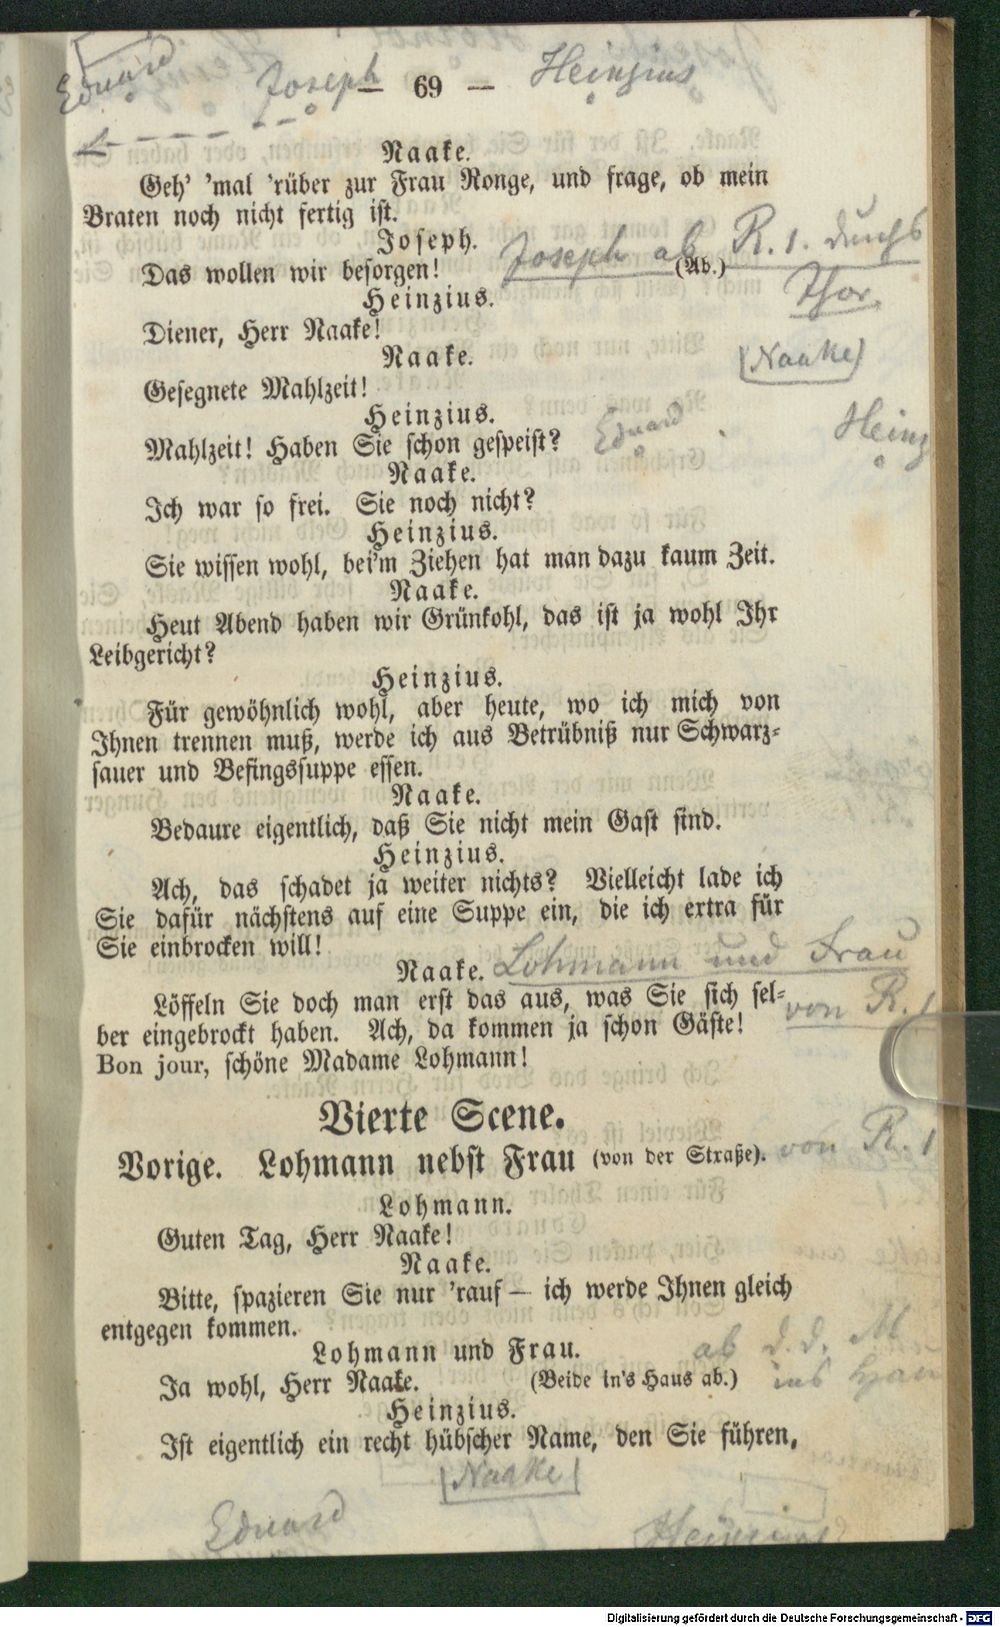 Eduard Joseph Heinzius
— 69 —
Naake.
Geh’ ’mal ’rüber zur Frau Ronge, und frage, ob mein
Braten noch nicht fertig ist.
Joseph. Joseph ab R. 1. durchs
Das wollen wir besorgen! (Ab.)
Thor.
Heinzius.
Diener, Herr Naake!
Naake. (Naake)
Gesegnete Mahlzeit!
Heinzius.
Mahlzeit! Haben Sie schon gespeist? Eduard Heinz
Naake.
Ich war so frei. Sie noch nicht?
Heinzius.
Sie wissen wohl, bei’m Ziehen hat man dazu kaum Zeit.
Naake.
Heut Abend haben wir Grünkohl, das ist ja wohl Ihr
Leibgericht?
Heinzius.
Für gewöhnlich wohl, aber heute, wo ich mich von
Ihnen trennen muß, werde ich aus Betrübniß nur Schwarz-
sauer und Befingssuppe essen.
Naake.
Bedaure eigentlich, daß Sie nicht mein Gast sind.
Heinzius.
Ach, das schadet ja weiter nichts? Vielleicht lade ich
Sie dafür nächstens auf eine Suppe ein, die ich extra für
Sie einbrocken will!
Naake. Lohmann und Frau
Löffeln Sie doch man erst das aus, was Sie sich sel- von R. 1
ber eingebrockt haben. Ach, da kommen ja schon Gäste!
Bon jour, schöne Madame Lohmann!
Vierte Scene.
Vorige. Lohmann nebst Frau (von der Straße). von R. 1
Lohmann.
Guten Tag, Herr Naake!
Naake.
Bitte, spazieren Sie nur ’rauf — ich werde Ihnen gleich
entgegen kommen.
Lohmann und Frau. ab d. d. M
Ja wohl, Herr Naake. (Beide in’s Haus ab.) ins Hau
Heinzius.
Ist eigentlich ein recht hübscher Name, den Sie führen,
(Naake)
Eduard Heinzius
Digitalisierung gefördert durch die Deutsche Forschungsgemeinschaft - DFG